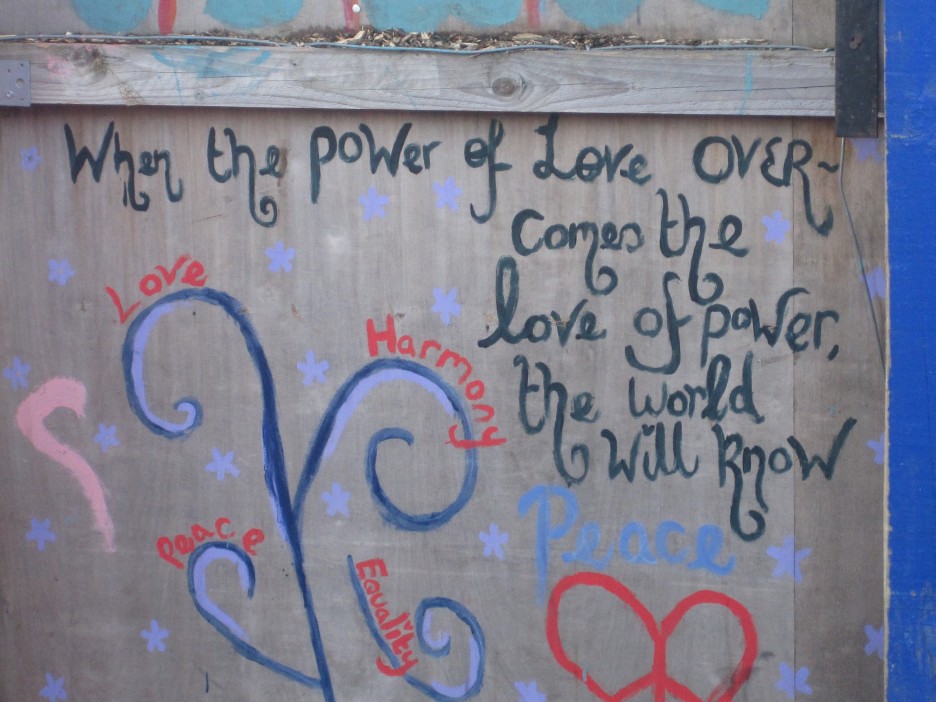 When the power of Love OVER~
comes the
love of power,
the world
will know
Peace
Love
Harmony
Peace
Equality